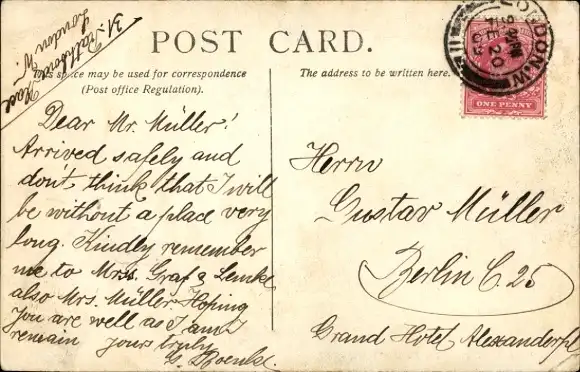 31 Rathbone
Place
London W.
POST CARD.
This space may be used for correspondence
(Post office Regulation).
The address to be written here.
LONDON. W
9 AM
FE 20
09
ONE PENNY
Dear Mr. Müller!
Arrived safely and
don't think that I will
be without a place very
long. Kindly remember
me to Mrss. Graf & Lemke
also Mrs. Müller Hoping
you are well as I am I
remain yours truly
Herrn
Gustav Müller
Berlin C. 25
Grand Hotel Alexanderpl